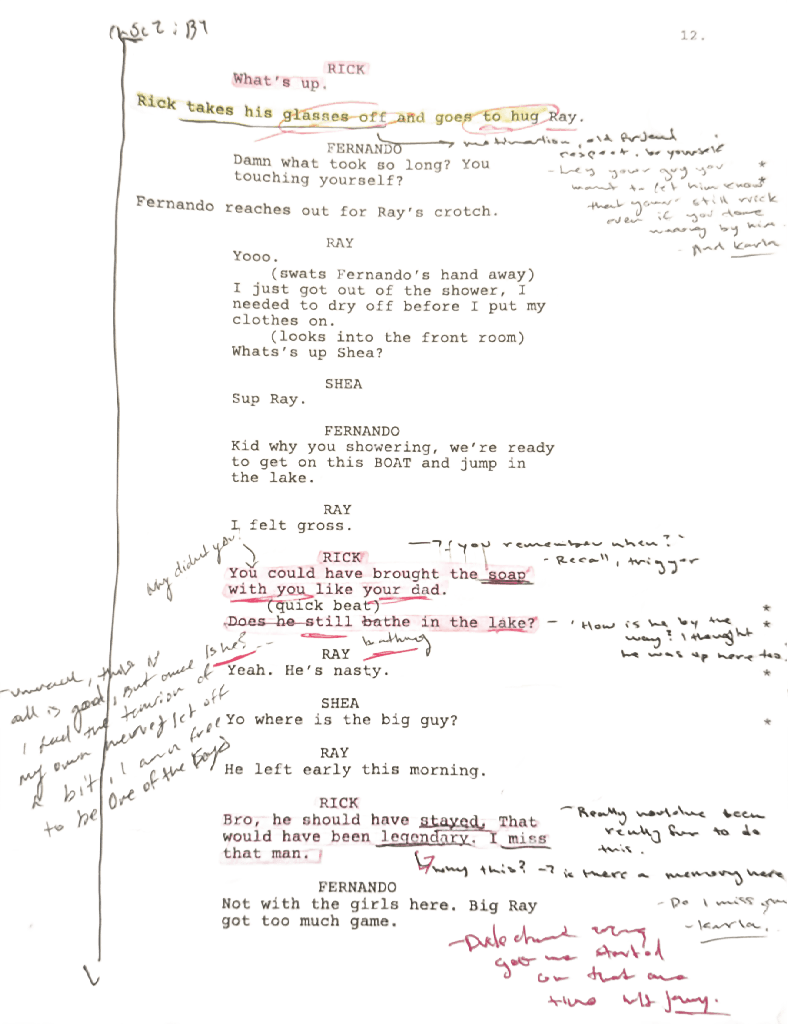 Sc 2 : B7
12.
RICK
What's up.
Rick takes his glasses off and goes to hug Ray.
motivation, old friend
respect. be yourself
FERNANDO
Damn what took so long? You
touching yourself?
- hey your guy you *
want to let him know *
that your still rick
even if you done
wrong by him.
- And Karla
Fernando reaches out for Ray's crotch.
RAY
Yooo.
(swats Fernando's hand away)
I just got out of the shower, I
needed to dry off before I put my
clothes on.
(looks into the front room)
Whats's up Shea?
SHEA
Sup Ray.
FERNANDO
Kid why you showering, we're ready
to get on this BOAT and jump in
the lake.
RAY
I felt gross.
Why didn't you?
RICK
"you remember when?"
- Recall, trigger
You could have brought the soap
with you like your dad.
(quick beat) *
Does he still bathe in the lake? *
bathing
Is he?
- 'How is he by the
way? I thought
he was up here too.
RAY
Yeah. He's nasty. *
all is good, But once
I feel the tension of
my own nerves let off
a bit, I am free
to be One of the boys
SHEA
Yo where is the big guy? *
RAY
He left early this morning.
RICK
Bro, he should have stayed. That
would have been legendary. I miss
that man.
- Really would've been
really fun to do
this.
why this? -> is there a memory here
- Do I miss you
- Karla.
FERNANDO
Not with the girls here. Big Ray
got too much game.
got me started
on that one
time